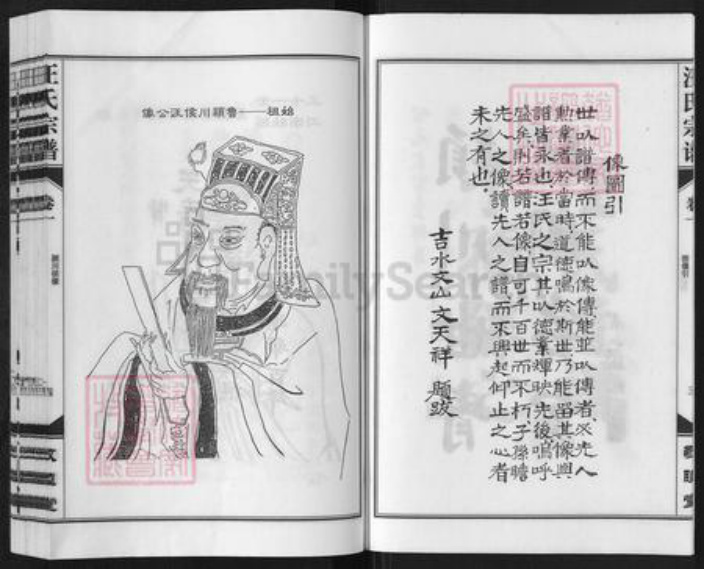 像圖引
世以譜傳而不能以像傳能並以傳者必先人
勳業著於當時道德鳴於斯世乃能留其像與
譜皆永也汪氏之宗其以德業輝映先後鳴呼
盛矣則若譜若像自可千百世而不朽子孫瞻
先人之像讀先人之譜而不興起仰止之心者
未之有也
吉水文山文天祥 題跋
始祖——魯潁川侯汪公像
汪氏宗譜
卷一
汪氏宗譜
卷一
FamilySearch